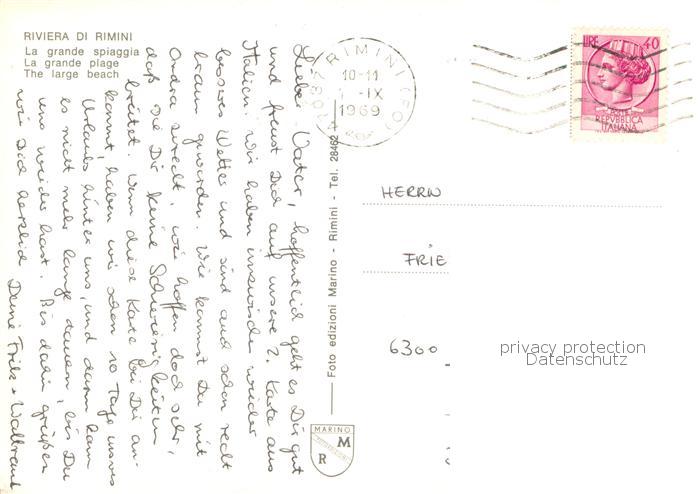 RIVIERA DI RIMINI
La grande spiaggia
La grande plage
The large beach
Lieber Vater, hoffentlich geht es Dir gut
und freust Dich auf unsere 2. Karte aus
Italien. Wir haben inzwischen wieder
besseres Wetter und sind auch schon recht
braun geworden. Wie kommst Du mit
Ondra zurecht, wir hoffen doch sehr,
daß sie Dir keine Schwierigkeiten
bereitet. Wenn diese Karte bei Dir an-
kommt, haben wir schon 10 Tage unseres
Urlaubs hinter uns, und dann kann
es nicht mehr lange dauern, bis Du
uns wieder hast. Bis dahin grüßen
wir Dich herzlich Deine Fritz + Waltraud
Foto edizioni Marino - Rimini - Tel. 28462
MARINO
M
R
RIMINI (FO)
10-11
IX
1969
LIRE 40
POSTE
REPVBBLICA
ITALIANA
HERRN
FRIE
6300
privacy protection
Datenschutz